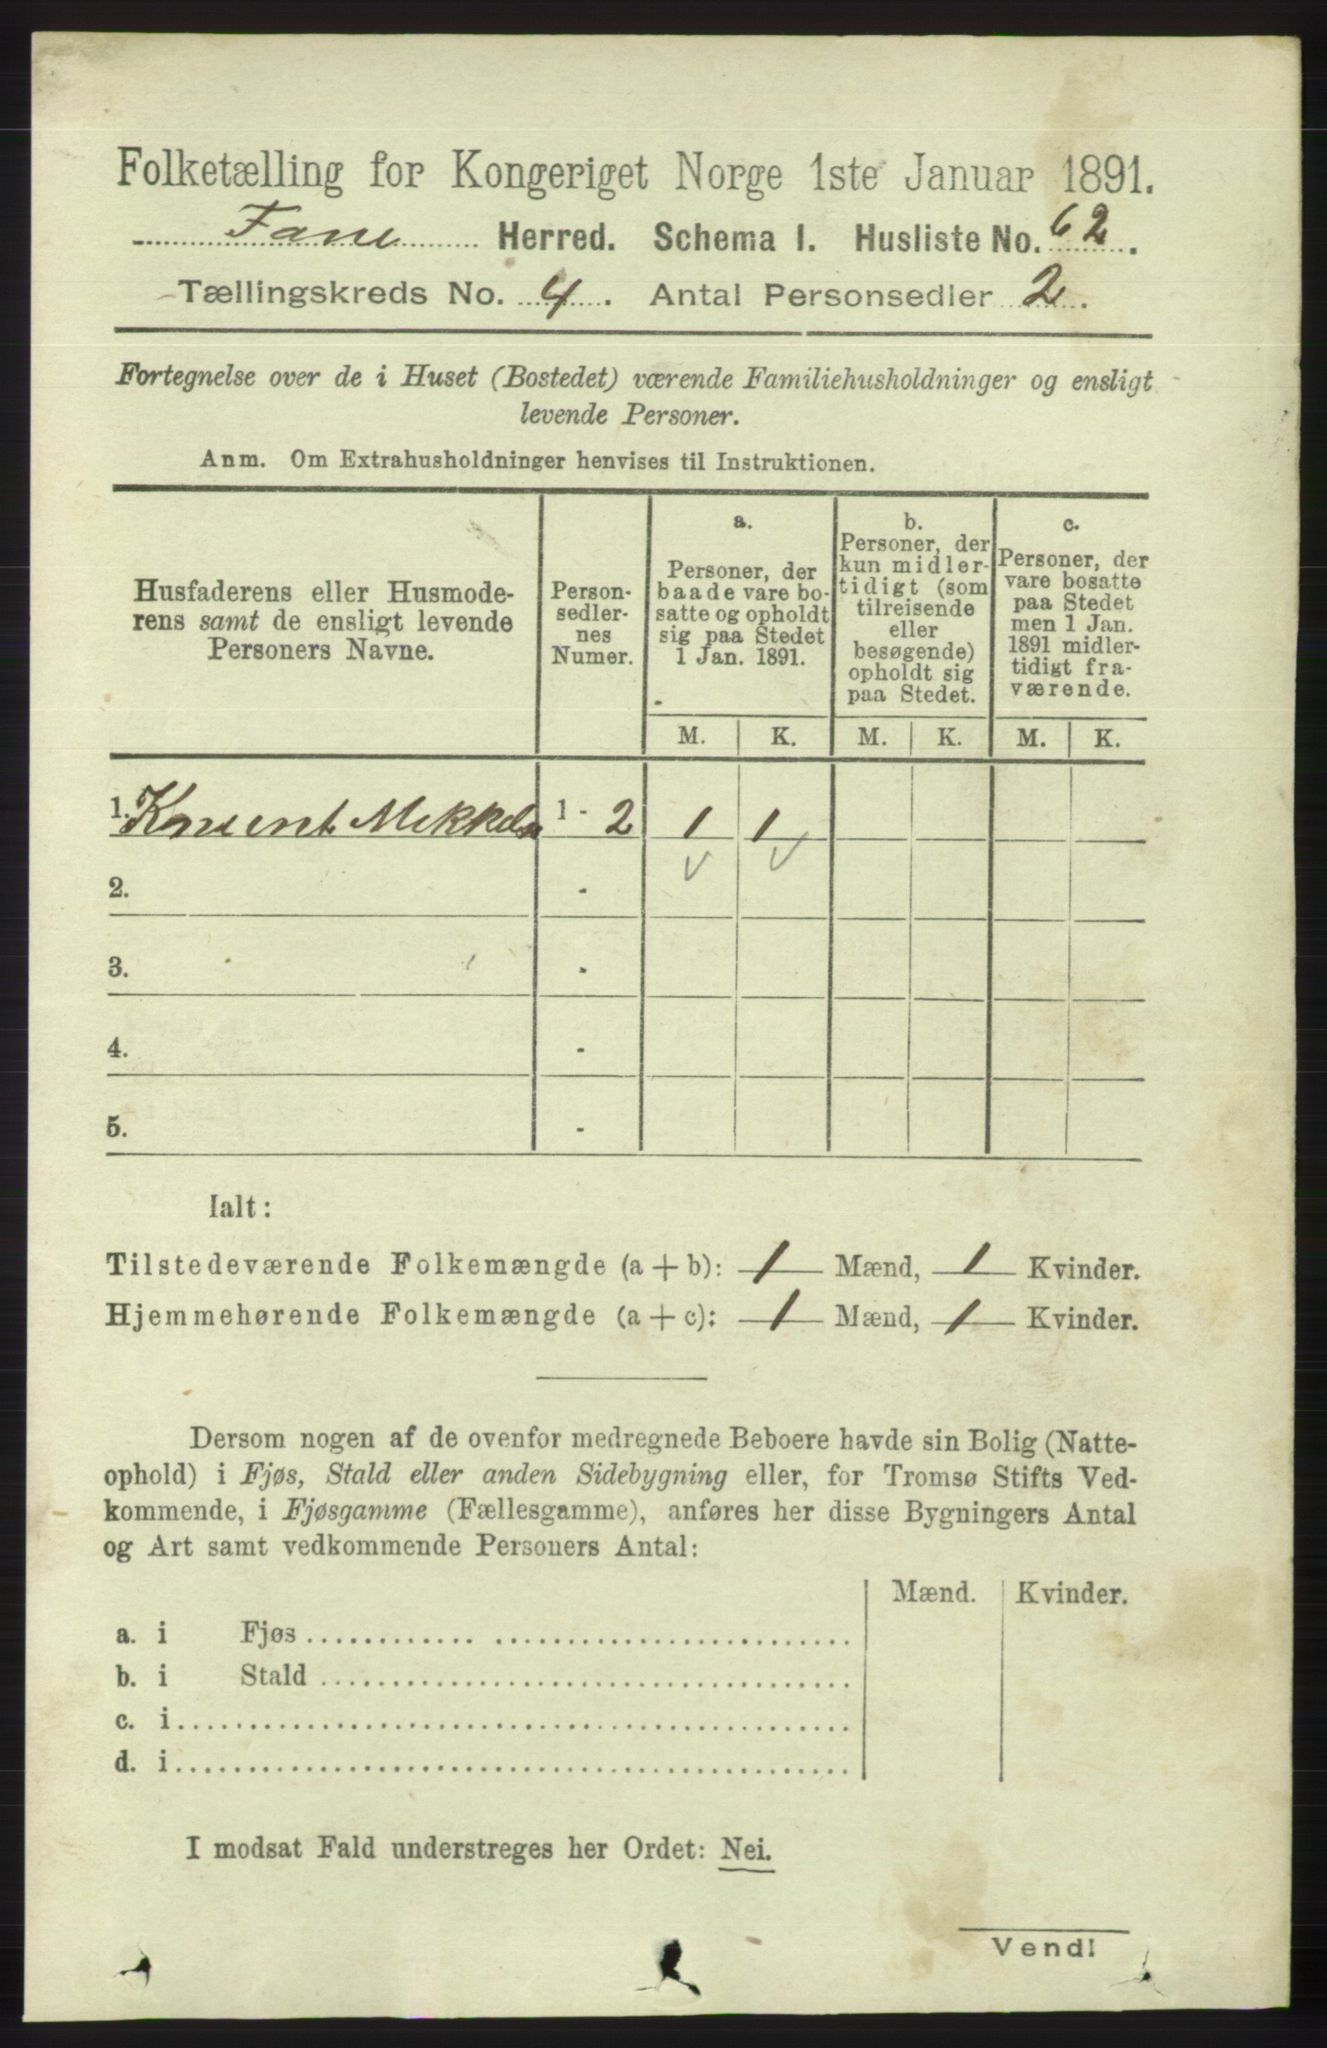 Folketælling for Kongeriget Norge 1ste Januar 1891.
Fane Herred. Schema I. Husliste No. 62.
Tællingskreds No. 4. Antal Personsedler 2.
Fortegnelse over de i Huset (Bostedet) værende Familiehusholdninger og ensligt
levende Personer.
Anm. Om Extrahusholdninger henvises til Instruktionen.
Husfaderens eller Husmode-
rens samt de ensligt levende
Personers Navne.
Person-
sedler-
nes
Numer.
a.
Personer, der
baade vare bo-
satte og opholdt
sig paa Stedet
1 Jan. 1891.
b.
Personer, der
kun midler-
tidigt (som
tilreisende
eller
besøgende)
opholdt sig
paa Stedet.
c.
Personer, der
vare bosatte
paa Stedet
men 1 Jan.
1891 midler-
tidigt fra-
værende.
M. K. M. K. M. K.
1. 1 - 2 1 1
2. -
3. -
4. -
5. -
Ialt:
Tilstedeværende Folkemængde (a + b): 1 Mænd, 1 Kvinder.
Hjemmehørende Folkemængde (a + c): 1 Mænd, 1 Kvinder.
Dersom nogen af de ovenfor medregnede Beboere havde sin Bolig (Natte-
ophold) i Fjøs, Stald eller anden Sidebygning eller, for Tromsø Stifts Ved-
kommende, i Fjøsgamme (Fællesgamme), anføres her disse Bygningers Antal
og Art samt vedkommende Personers Antal:
Mænd. Kvinder.
a. i Fjøs
b. i Stald
c. i
d. i
I modsat Fald understreges her Ordet: Nei.
Vend!